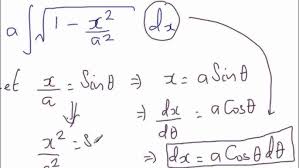 a ∫ √(1 - x²/a²) dx
let x/a = Sinθ ⇒ x = a Sinθ
⇓ ⇒ dx/dθ = a Cosθ
x²/a² = S ⇒ dx = a Cosθ dθ